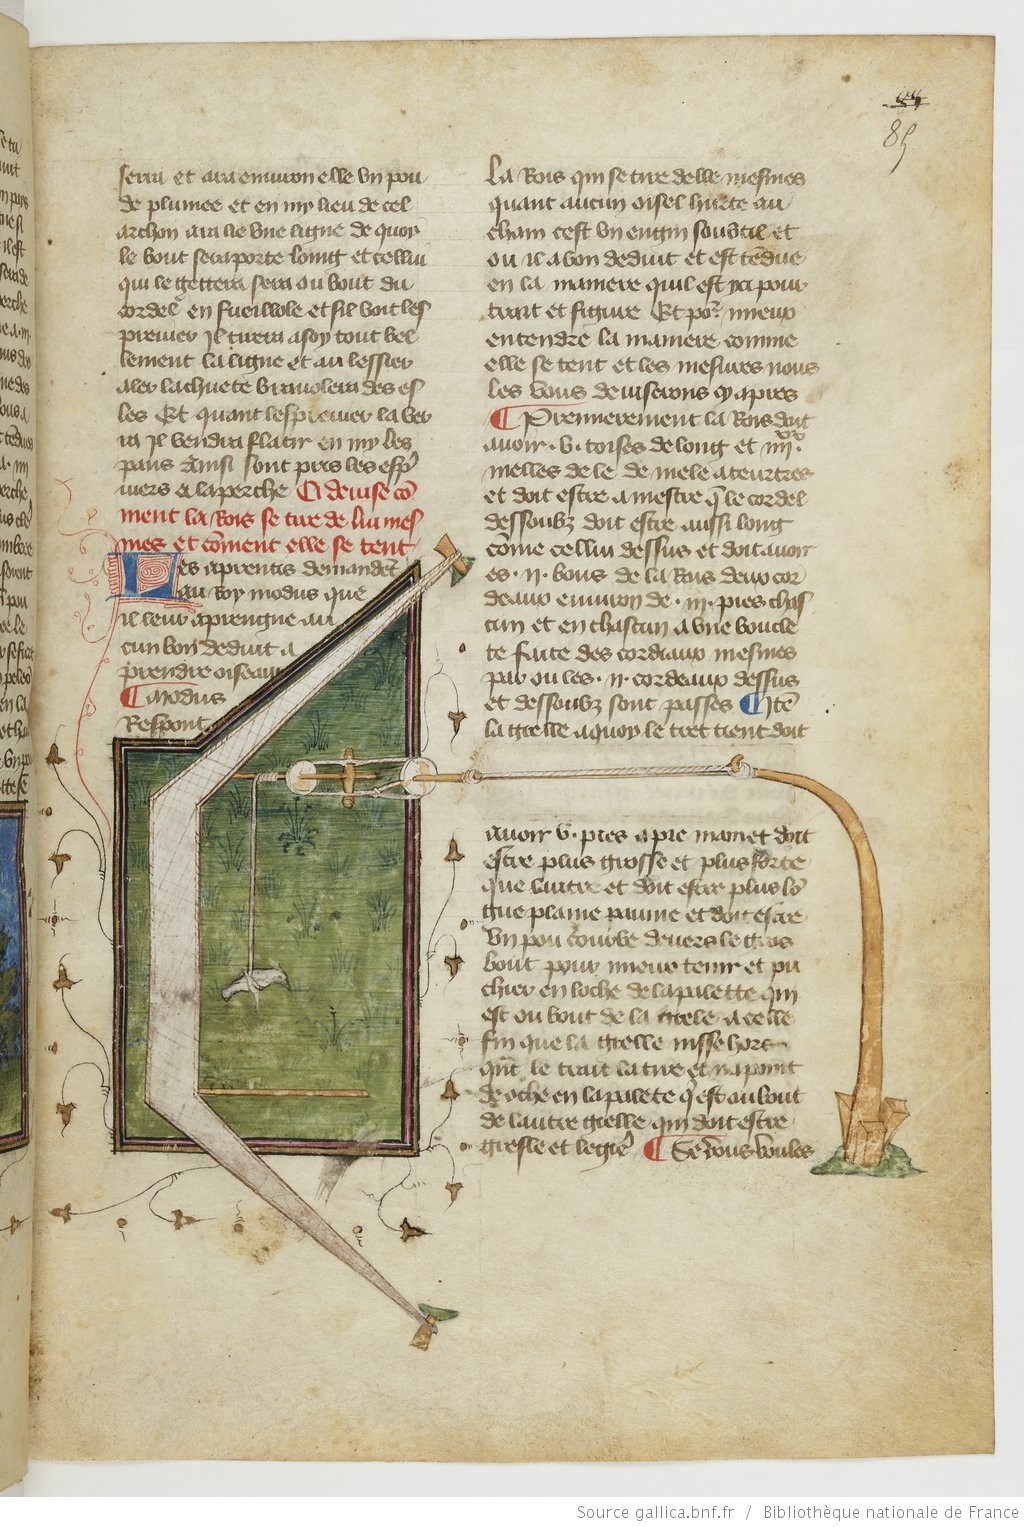 85
serra et aura environ elle un pou
de plumee et en my lieu de cel
archon aura lie une ligne de quoy
le bout sera porte loing et cellui
qui le gettera sera ou bout du
cordel en fueillole et sil voit les
premier Il tirera a soy tout bel
lement la ligne et au lessier
aler la chuete branolera des es
les Et quant lespreuier la ver
ra Il vendra flatir en my les
pans Ainsi sont pris les esp
uiers a la perche Ci deuise co
ment la Rois se tire de lui mes
mes et coment elle se tent
Les aprentis demandet
au Roy modus que
il leur aprengne au
cun bon deduit a
prendre oiseaux
¶ Modus
Respont
La Rois qui se tire delle mesmes
quant aucun oisel hurte au
chain cest un engin soubtil et
ou il a bon deduit et est tendue
en la maniere quil est yci pour
trait et figure Et por mieux
entendre la maniere comme
elle se tent et les mesures nous
les vous deuiserons cy apres
¶ Premierement la Rois doit
auoir .v. toises de long et iiii.xx
melles de le de mele a teurtres
et doit estre a mestre q le cordel
dessoubz doit estre aussi long
come cellui dessus et doit auoir
es .ii. bous de la Rois deux cor
deaux environ de .iii. pies chas
cun et en chascun a une boucle
te faite des cordiaux mesmes
par ou les .ii. cordeaux dessus
et dessoubz sont passes ¶ Ite
la guelle a quoy le tret tient doit
auoir v. pies a pie main et doit
estre plus grosse et plus forte
que lautre et doit estre plus lo
gue plaine paume et doit estre
un pou courbe deuers le gros
bout pour mieux tenir et pu
chier en loche de la palette qui
est ou bout de la guele a celle
fin que la guelle nisse hors
qut le trait la tire et na point
de oche en la palete q est ou bout
de lautre guelle qui doit estre
gresle et legier ¶ Se vous voules
Source gallica.bnf.fr / Bibliothèque nationale de France